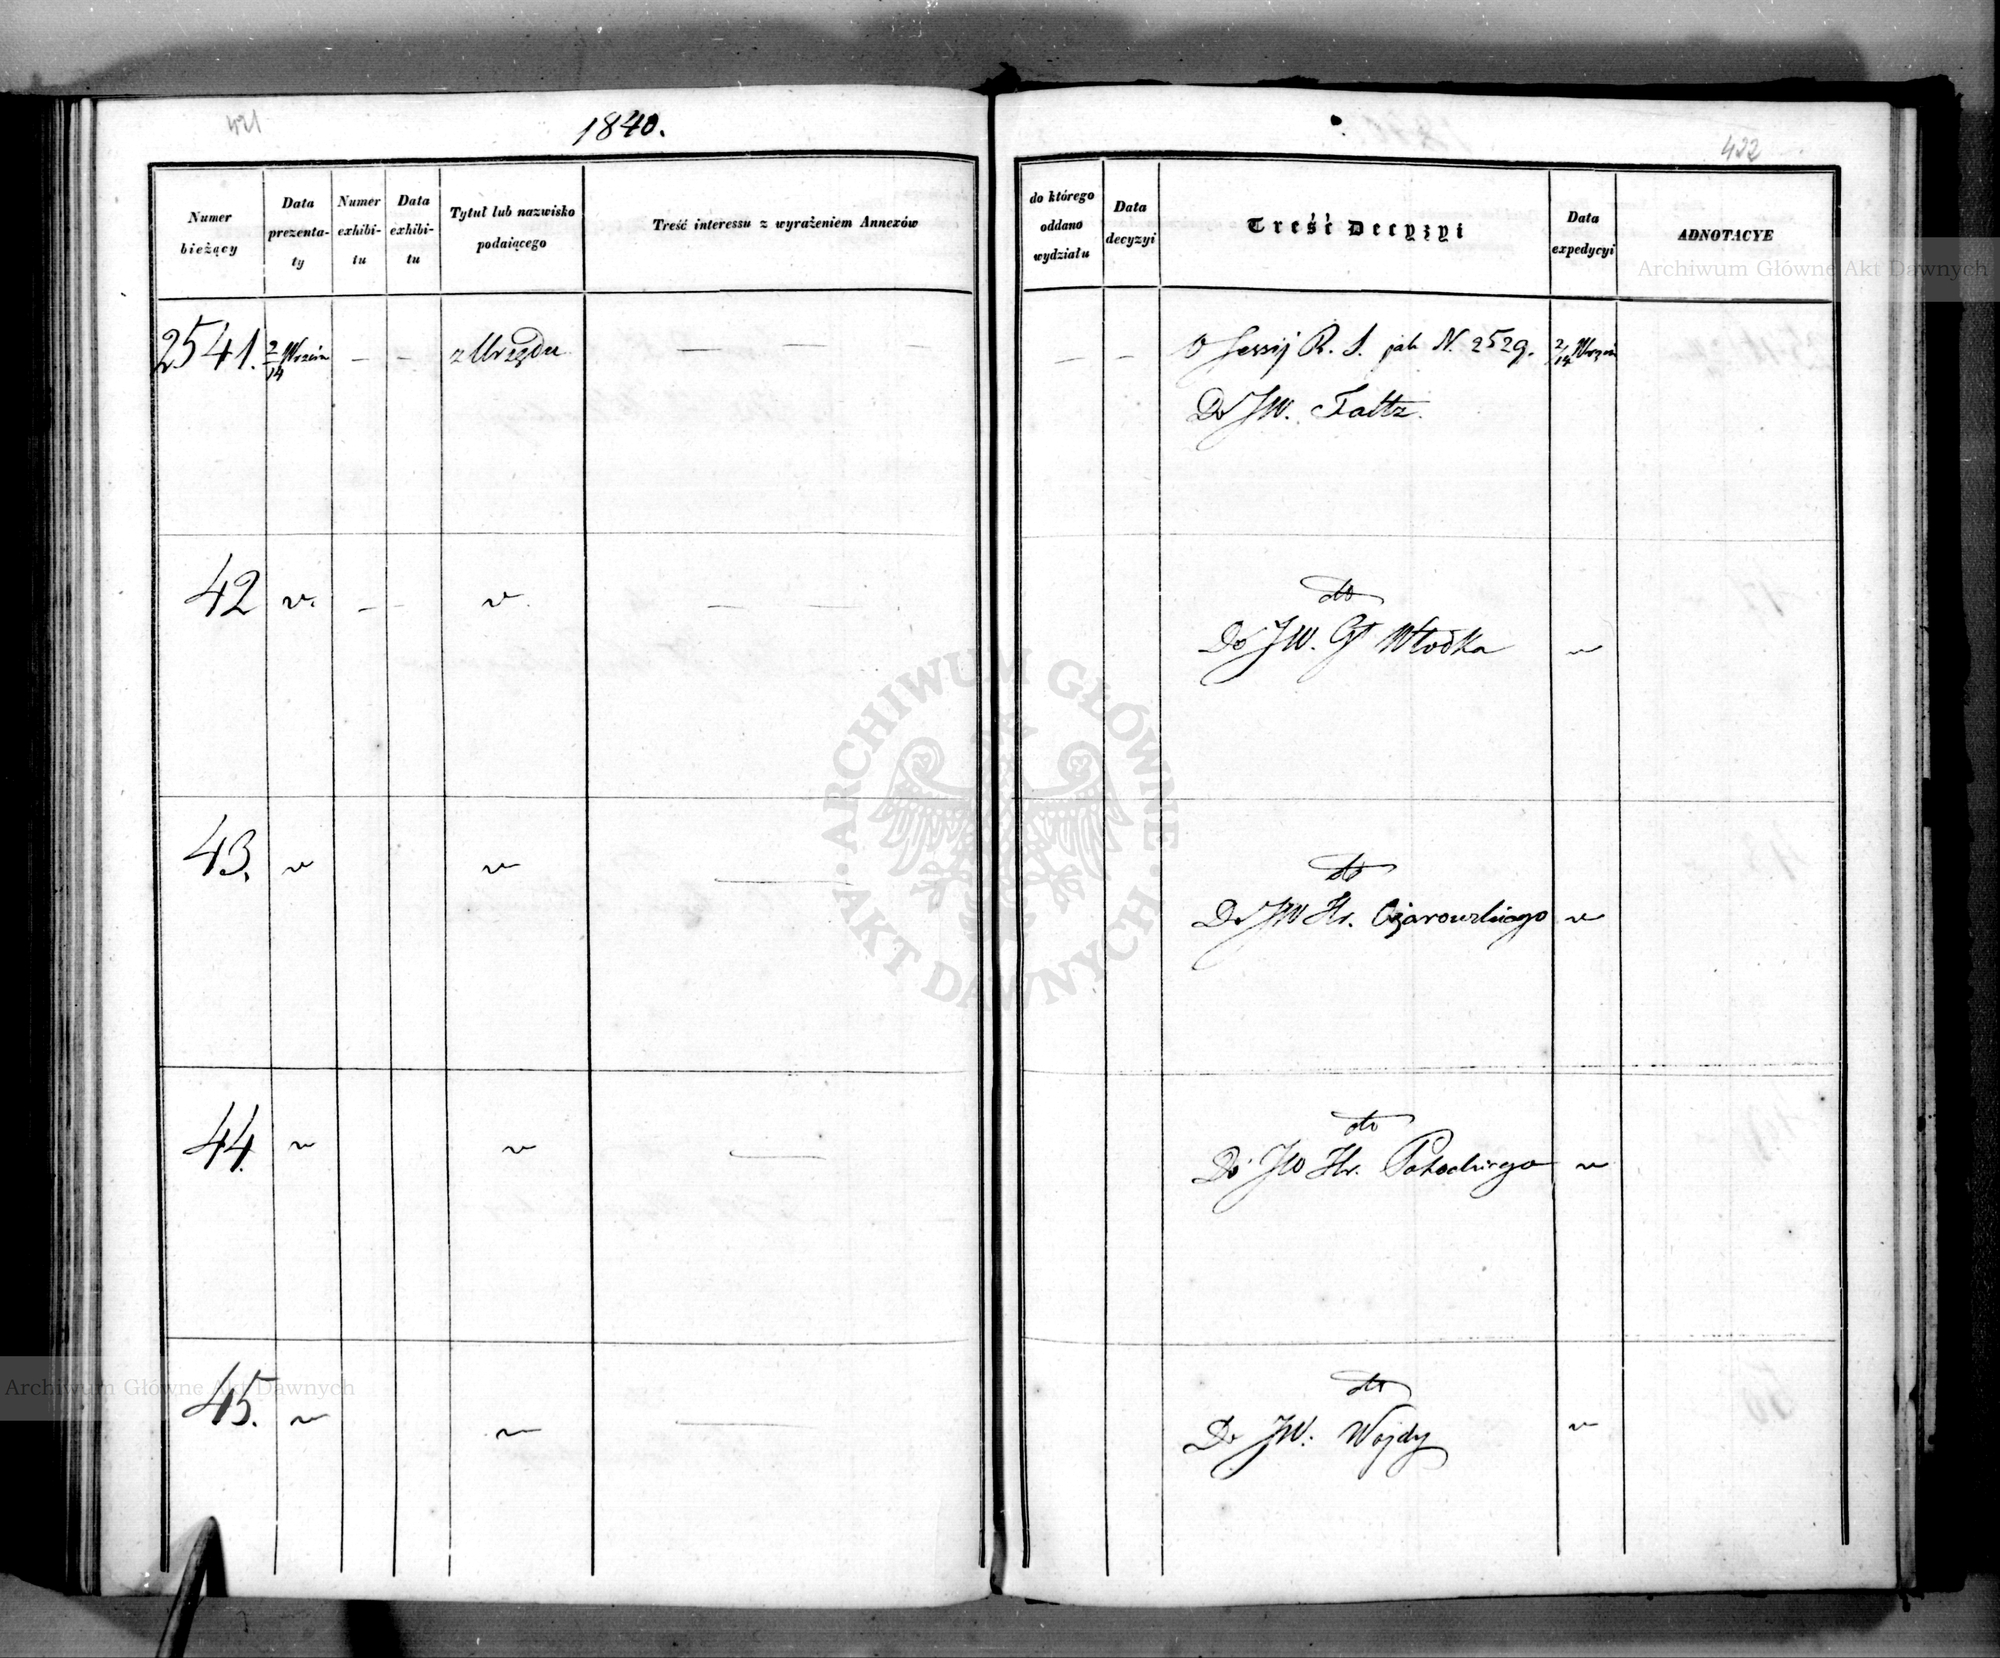 421
1840.
Numer bieżący
Data prezenta-ty
Numer exhibi-tu
Data exhibi-tu
Tytuł lub nazwisko podaiącego
Treść interessu z wyrażeniem Annexów
2541. 2/14 Wrześn — — z Urzędu — — —
42 v. — — v. — —
43. v v —
44. v v —
45. v v —
422
do którego oddano wydziału
Data decyzyi
Treść Decyzyi
Data expedycyi
ADNOTACYE
— — O Sessij R. S. jak N. 2529. 2/14 Wrześn
Do JW. Faltz.
dto
Do JW. Gł Włodka v
dto
Do JW Hr. Ożarowskiego v
dto
Do JW Hr. Potockiego v
dto
Do JW. Wojdy v
Archiwum Główne Akt Dawnych
ARCHIWUM GŁÓWNE · AKT DAWNYCH ·
Archiwum Główne Akt Dawnych